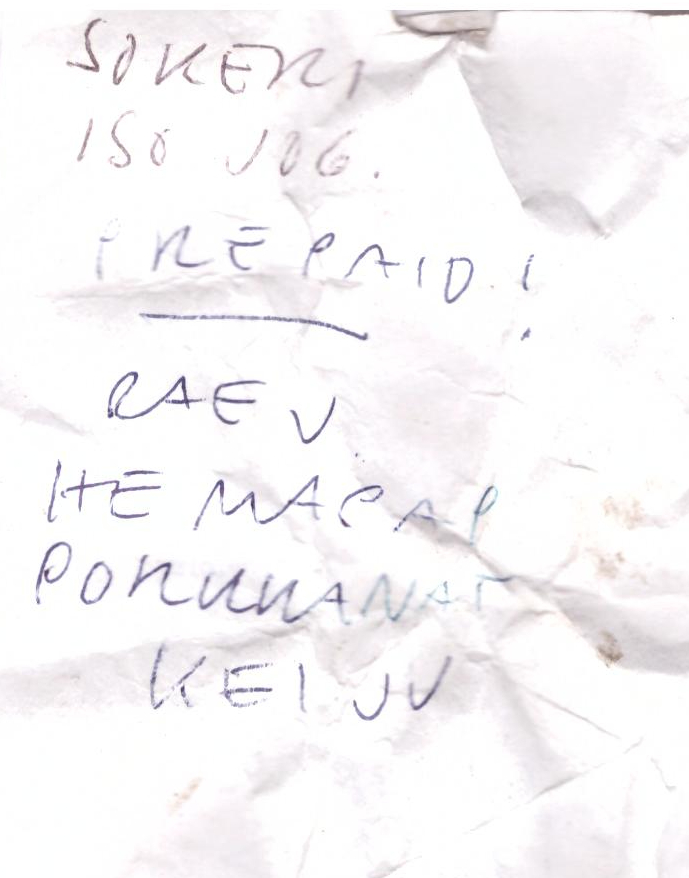 SOKERI
ISO JOG.
PREPAID!
RAE J.
HE MAPAP
PORKKANAT
KEIJU